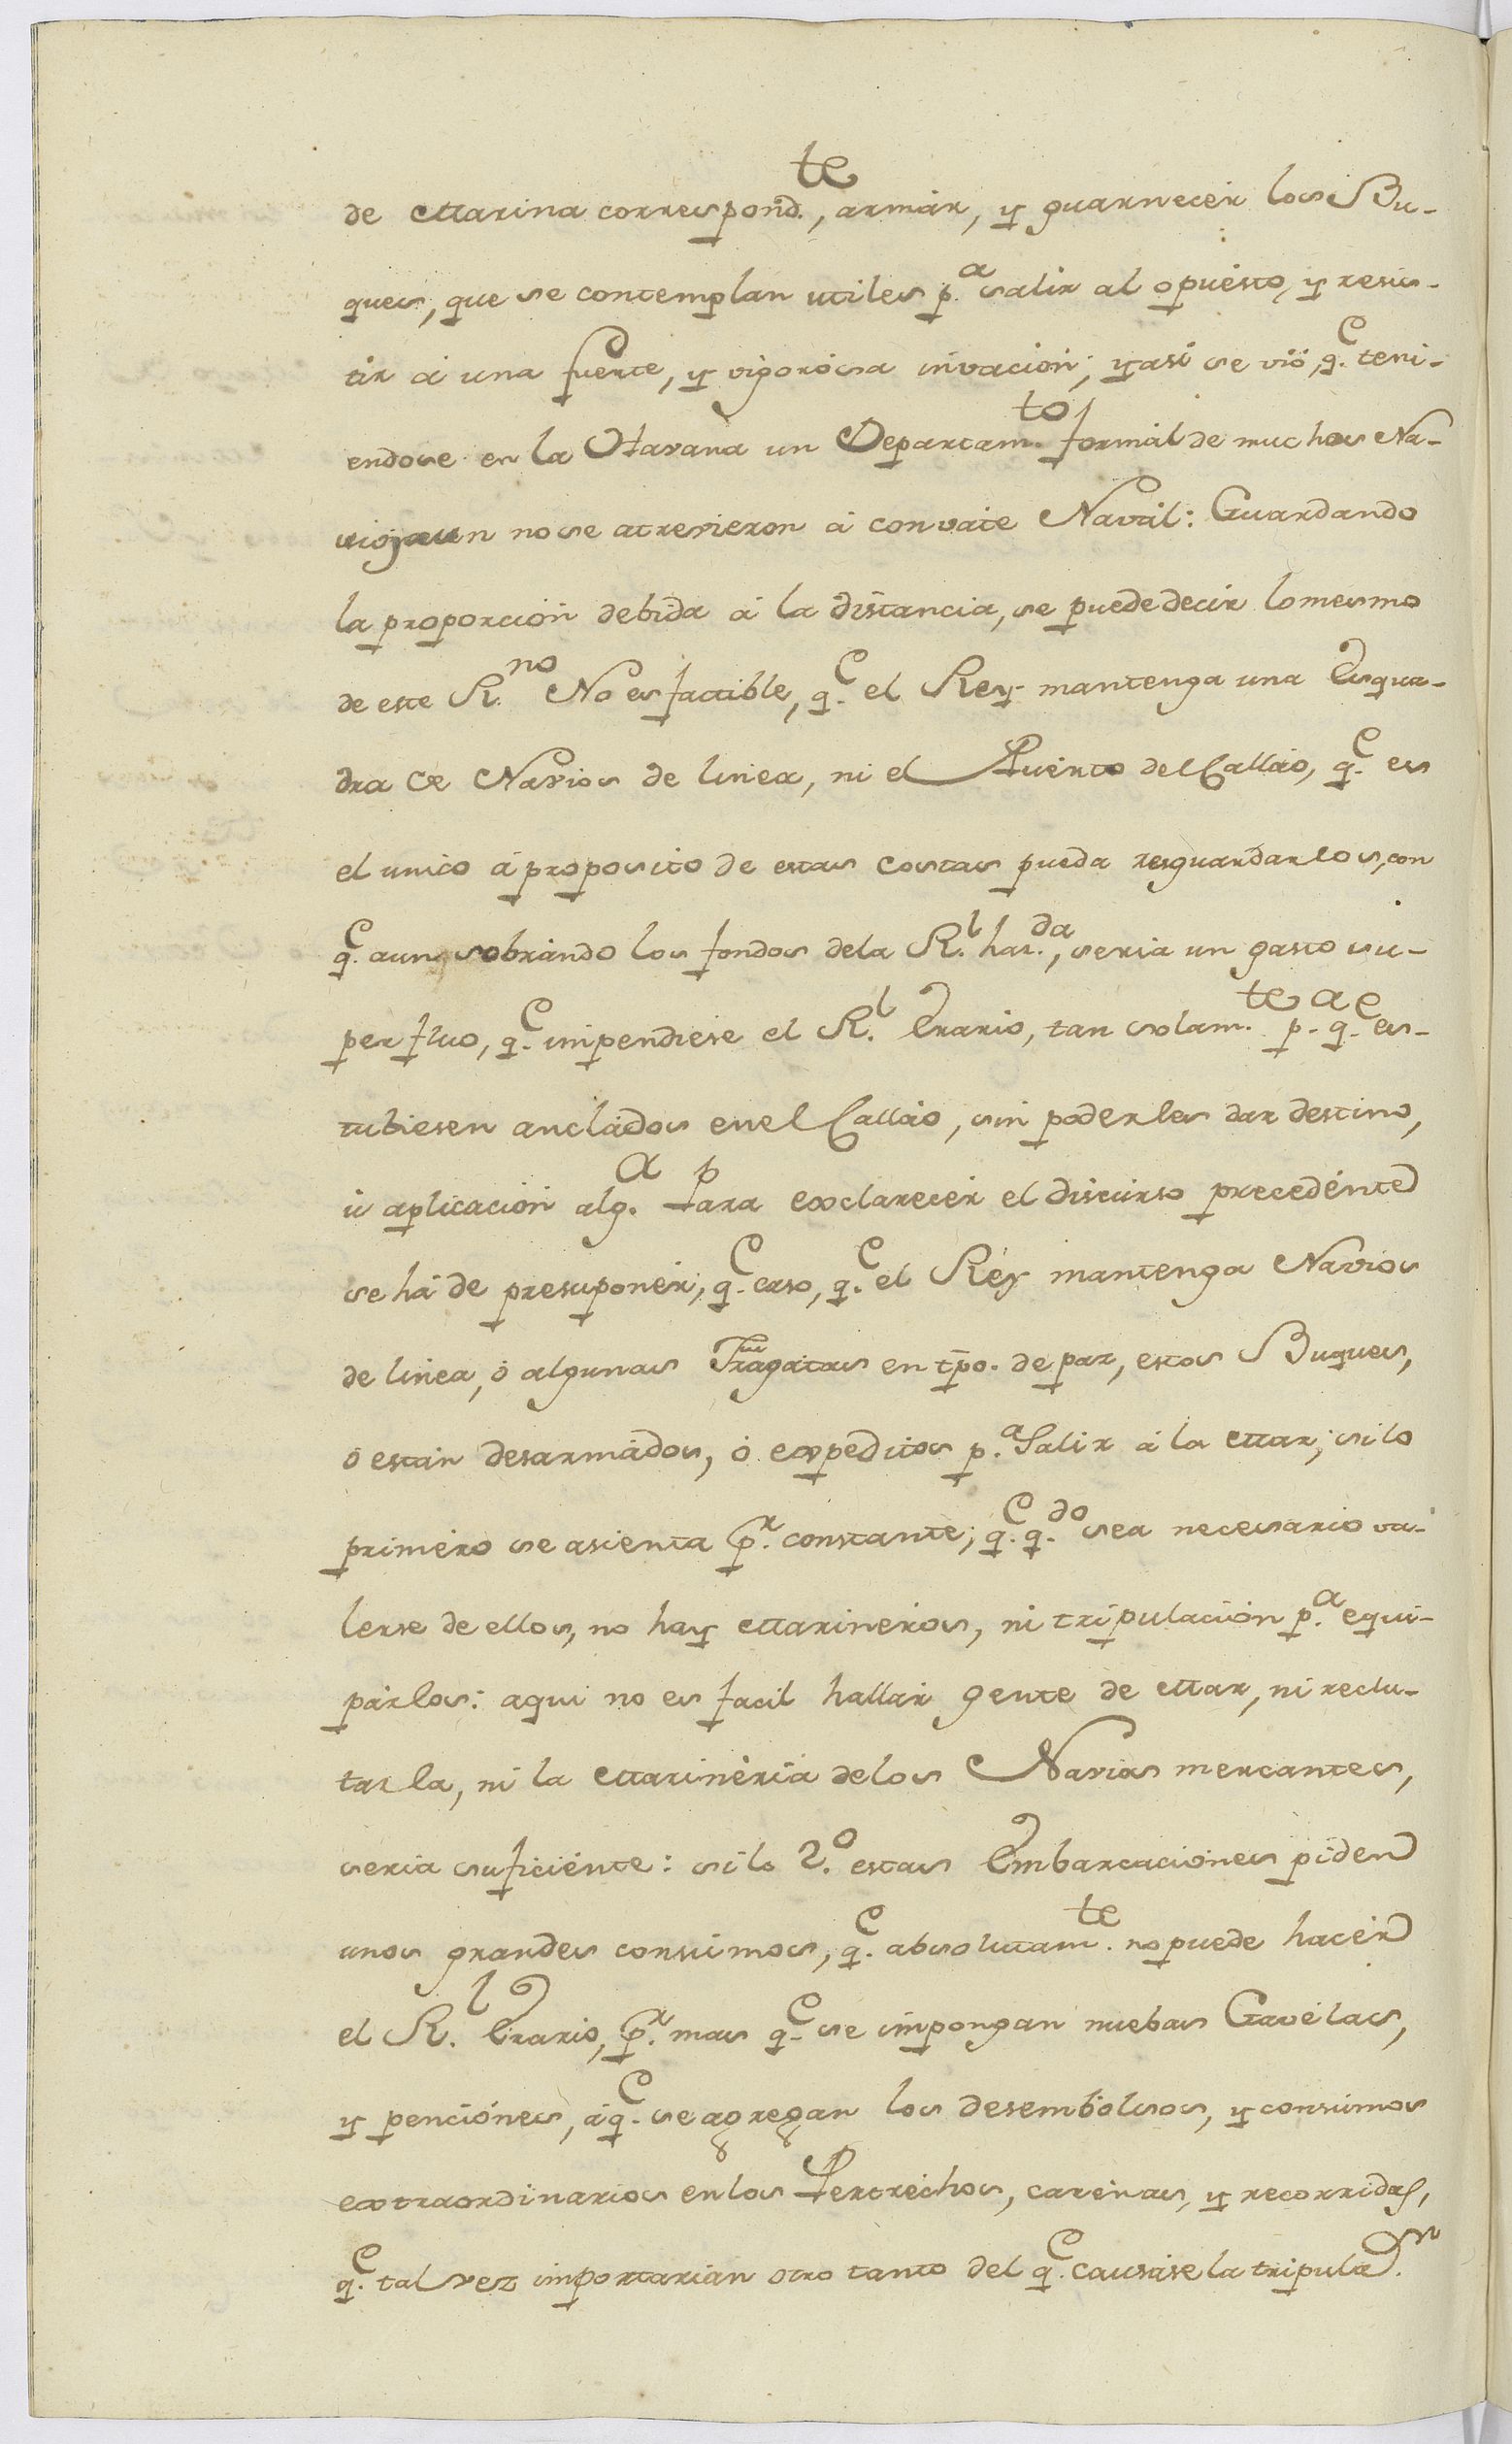 de Marina correspond.te, armár, y guarnecér los Bu-
ques, que se contemplan utiles p.a salir al opuesto, y resis-
tir á una fuerte, y vigorósa invación; y asi se vió, q.e teni-
endose en la Havana un Departam.to formál de muchos Na-
vios, aun no se atrevieron á convate Navál: Guardando
la proporción debida á la distancia, se puede decir lo mesmo
de este R.no No es factible, q.e el Rey mantenga una Esqua-
dra de Navios de linea, ni el Puerto del Callao, q.e es
el unico á proposito de estas costas pueda resguardarlos, con
q.e aun sobrando los fondos de la R.l haz.da, seria un gasto su-
perfluo, q.e impendiese el R.l Erario, tan solam.te p.a q.e es-
tubiesen anclados en el Callao, sin poderles dar destino,
ú aplicación alg.a Para exclarecér el discurso precedénte
se há de presuponér, q.e caso, q.e el Rey mantenga Navios
de linea, ó algunas Fragatas en tpo. de paz, estos Buques,
ó están desarmádos, ó expeditos p.a Salir á la Mar; si lo
primero se asienta p.r constante; q.e q.do sea necesario va-
lerse de ellos, no hay Marineros, ni tripulación p.a equi-
párlos: aqui no es facil hallar gente de Mar, ni reclu-
tarla, ni la Marinéria de los Navios mercantes,
seria suficiénte: si lo 2.o estas Embarcaciones piden
unos grandes consúmos, q.e absolutam.te no puede hacér
el R.l Erario, p.r mas q.e se impongan nuebas Gavélas,
y penciónes, á q.e se agregan los desembólsos, y consumos
extraordinarios en los Pertréchos, carénas, y recorridas,
q.e tal vez importarian otro tanto del q.e causáse la tripula.on